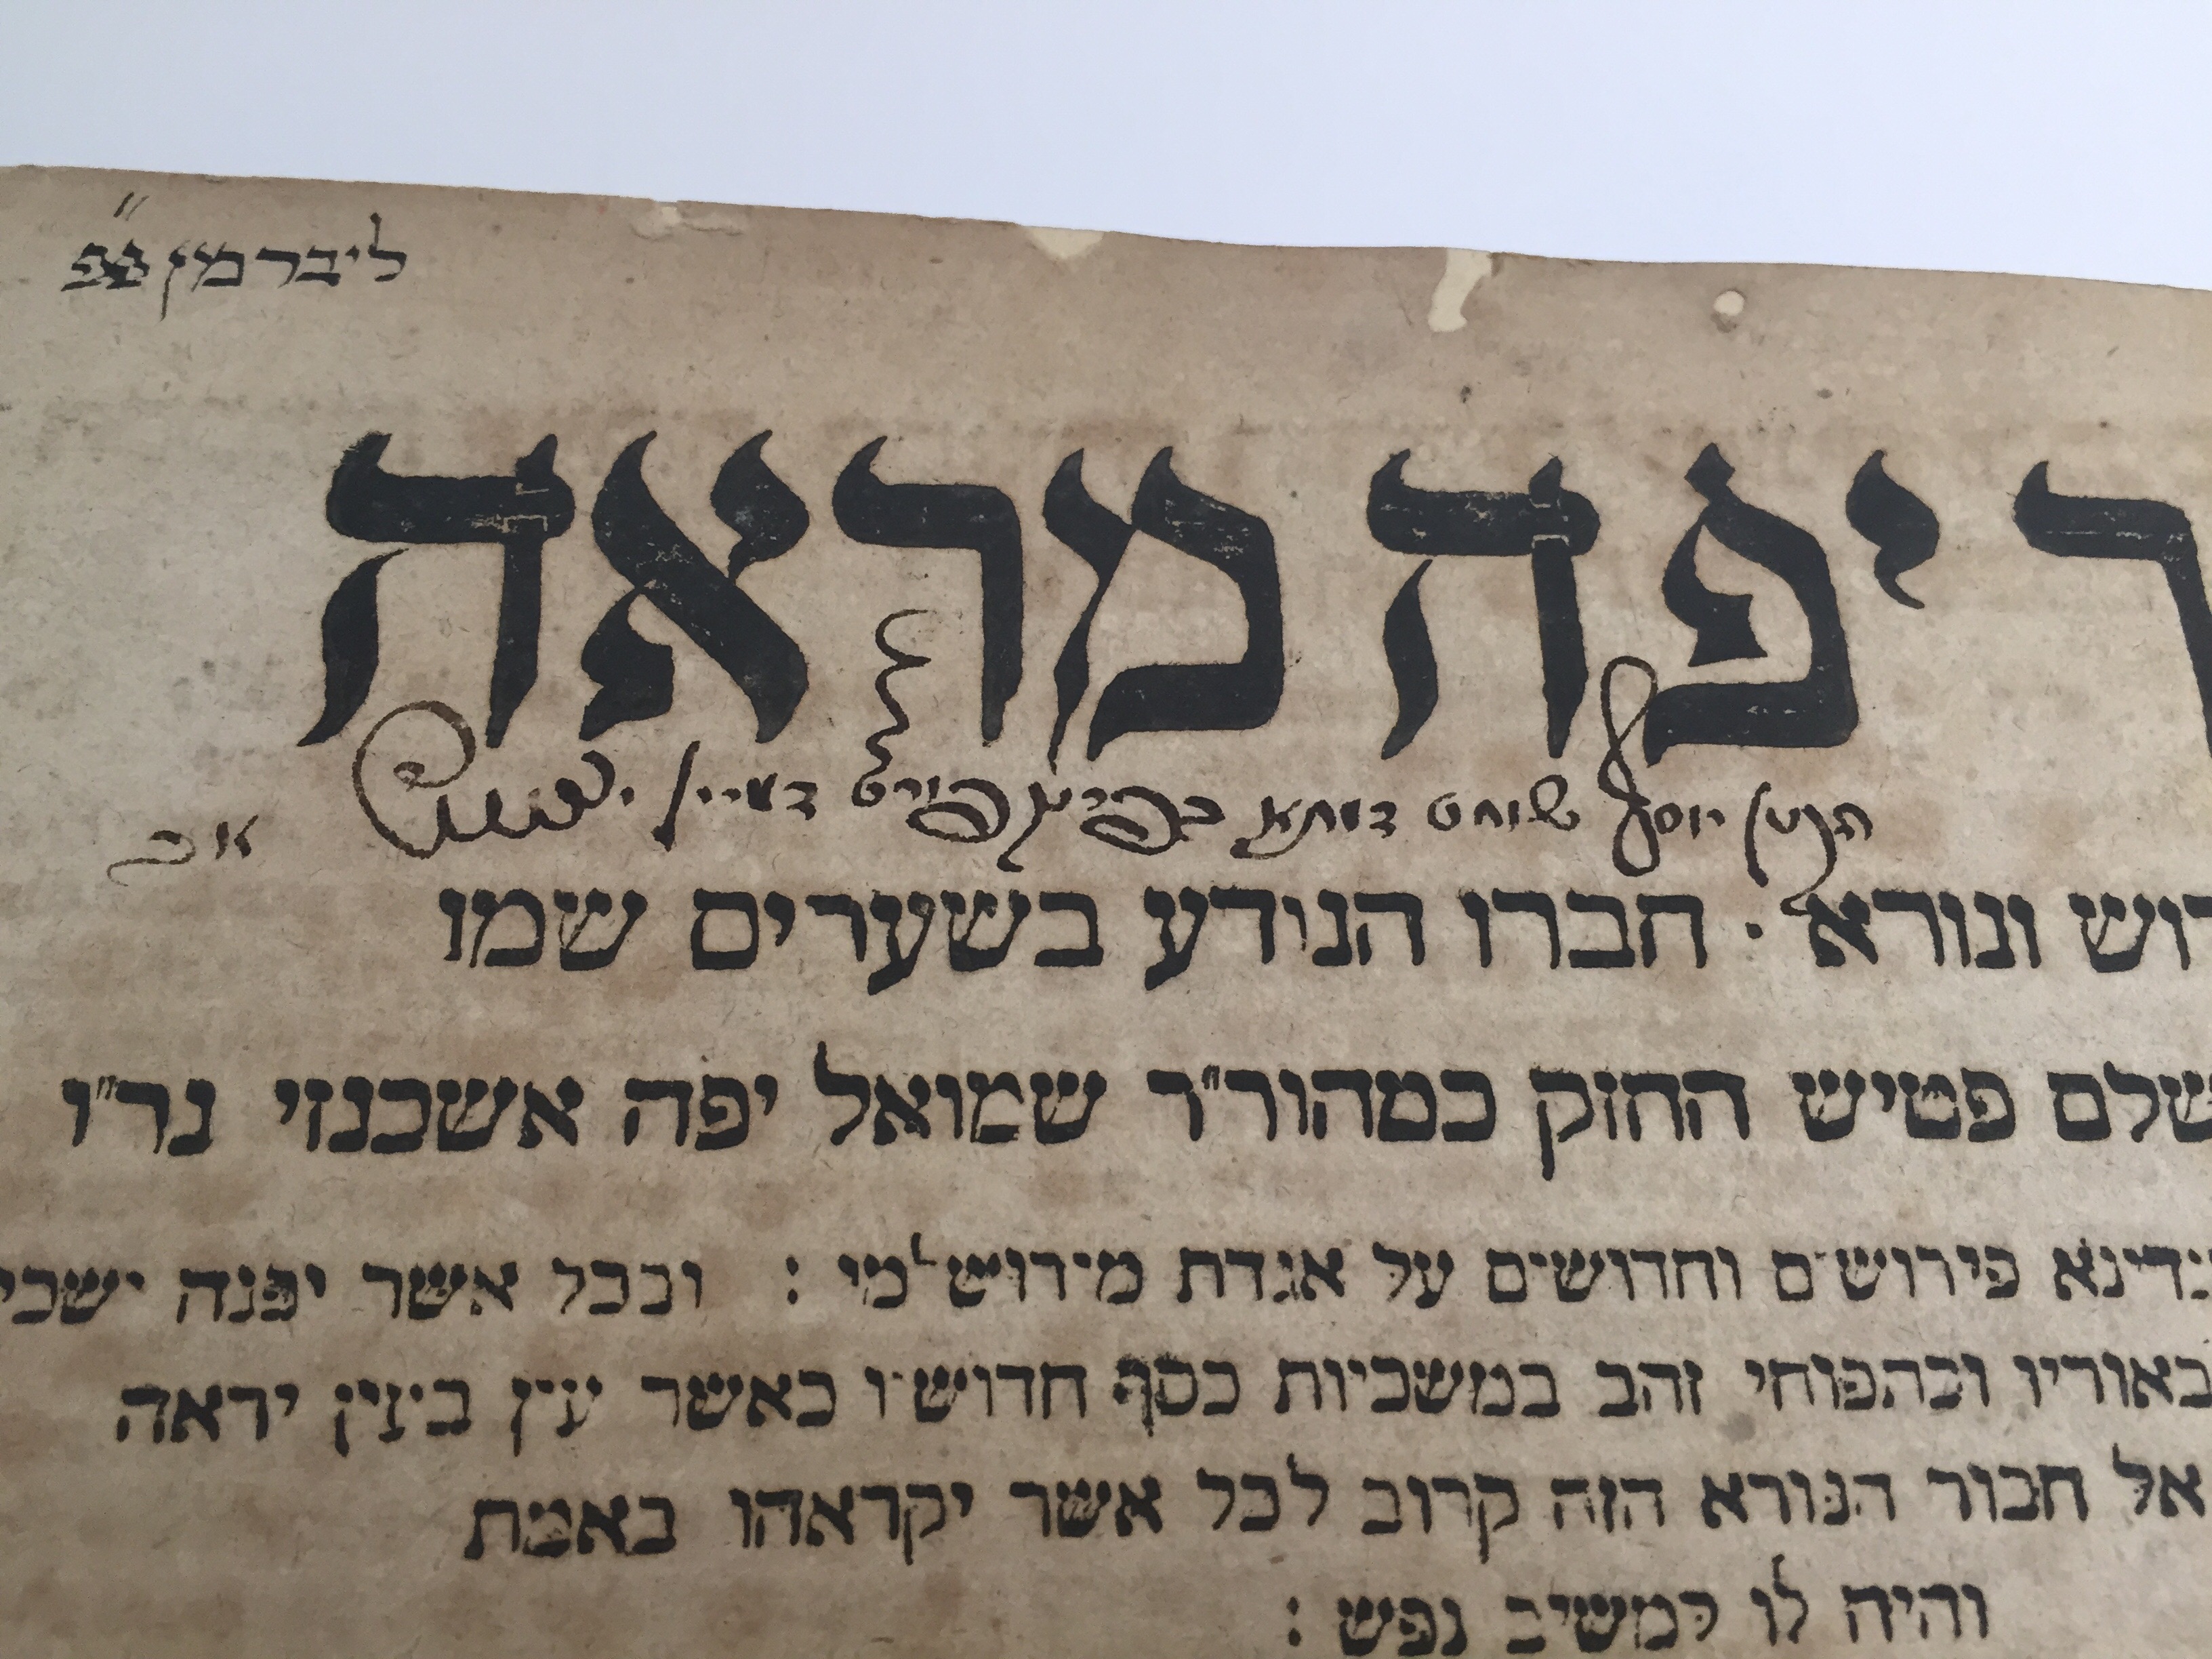 ליברמן
ר יפה מראה
הקטן יוסף שוחט דמתא
דוש ונורא . חברו הנודע בשערים שמו
שלם פטיש החזק כמהור"ר שמואל יפה אשכנזי נר"ו
פירושים וחדושים על אגדת מירושלמי : ובכל אשר יפנה ישכי
באוריו ובתפוחי זהב במשכיות כסף חדושיו כאשר עין בעין יראה
אל חבור הנורא הזה קרוב לכל אשר יקראהו באמת
והיה לו למשיב נפש :